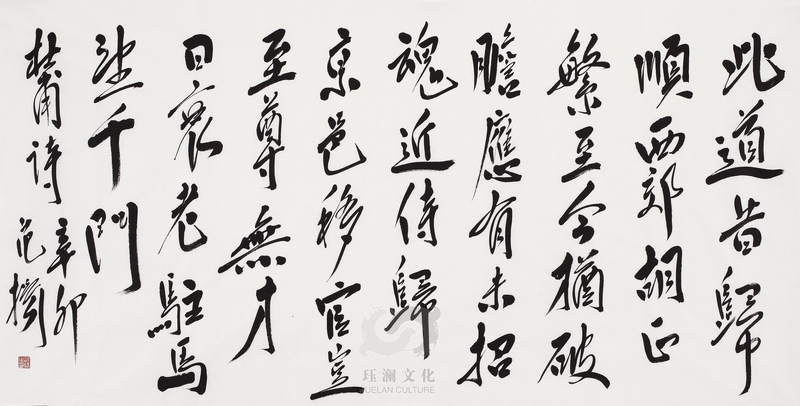 此道昔歸
順西郊胡正
繁至今猶破
膽應有未招
魂近侍歸
京邑移官豈
至尊無才
日衰老駐馬
望千門
杜甫詩
辛卯
范
珏澜文化
JUELAN CULTURE